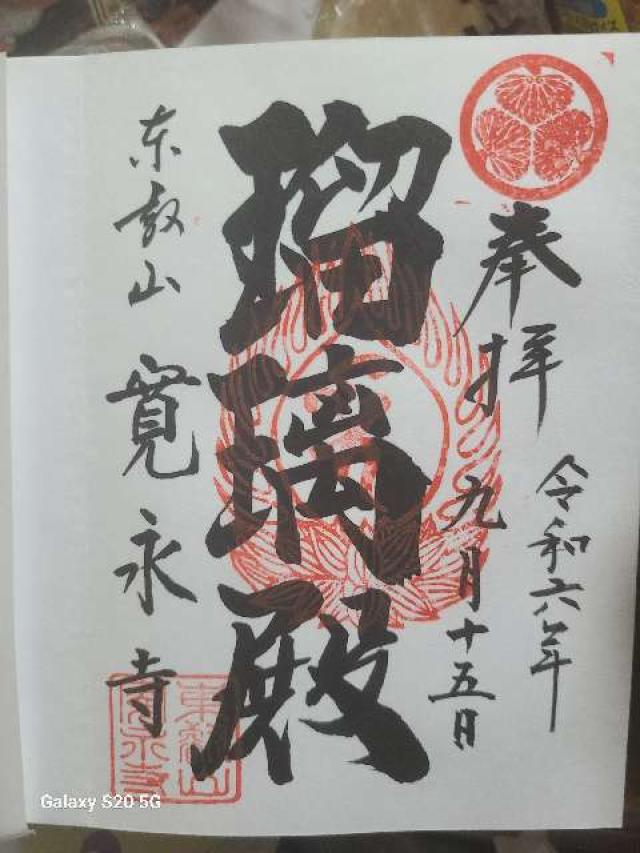 奉拝
令和六年
九月十五日
瑠璃殿
東叡山
寛永寺
東叡山
寛永寺
Galaxy S20 5G